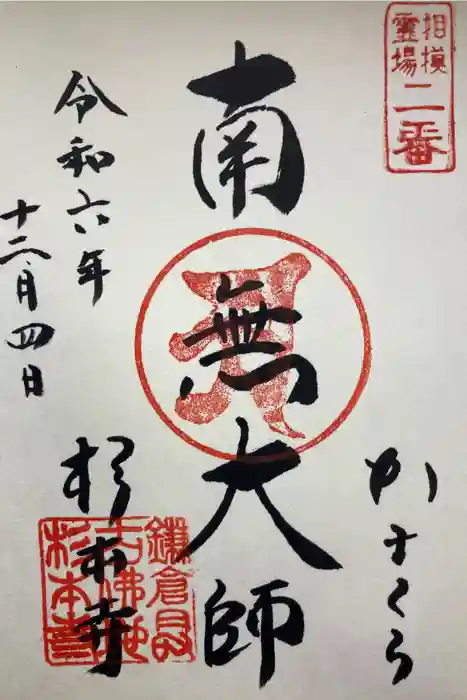 相模
靈場
二番
かまくら
南無大師
令和六年
十二月四日
杉本寺
鎌倉最
古佛地
杉本寺